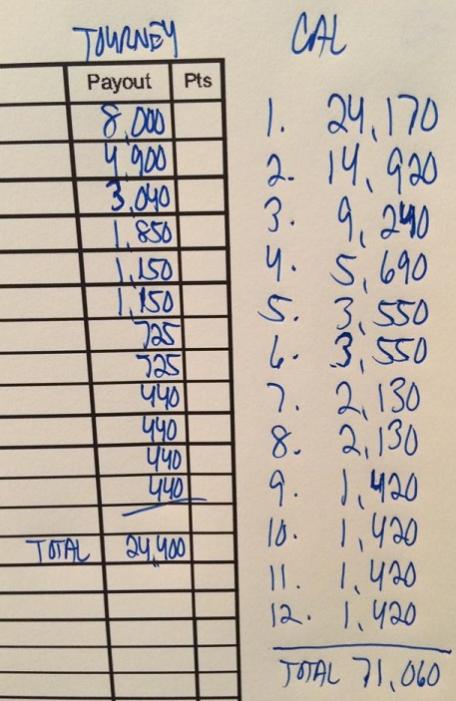 TOURNEY
Payout Pts
8,000
4,900
3,040
1,850
1,150
1,150
725
725
440
440
440
440
TOTAL 24,400
CAL
1. 24,170
2. 14,920
3. 9,240
4. 5,690
5. 3,550
6. 3,550
7. 2,130
8. 2,130
9. 1,420
10. 1,420
11. 1,420
12. 1,420
TOTAL 71,060